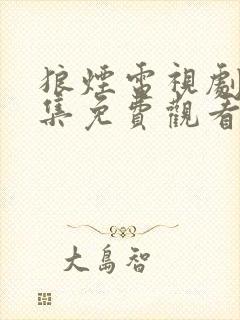 狼煙雷視劇
集免費觀看
大島智